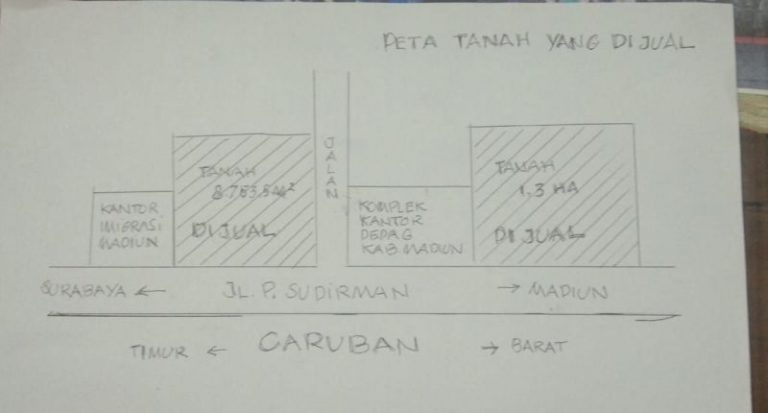 PETA TANAH YANG DIJUAL
TANAH
8.753.5 M²
DIJUAL
JALAN
TANAH
1.3 HA
DIJUAL
KANTOR
IMIGRASI
MADIUN
KOMPLEK
KANTOR
DEPAG
KAB. MADIUN
SURABAYA ← JL. P. SUDIRMAN → MADIUN
TIMUR ← CARUBAN → BARAT